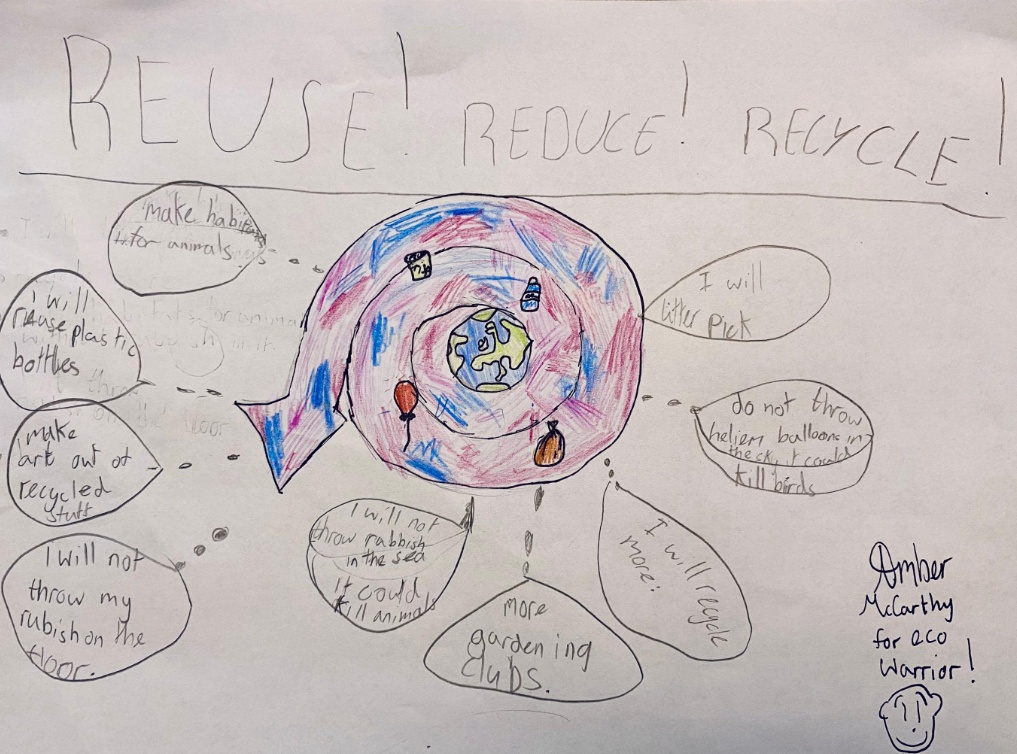 REUSE! REDUCE! RECYCLE!
make habitats
for animals
I will
litter pick
i will
reuse plastic
bottles
do not throw
heliem balloons in
the sky it could
kill birds
make
art out of
recycled
stuff
I will not
throw rubbish
in the sea
It could
kill animals
I will recycle
more:
I will not
throw my
rubish on the
floor.
more
gardening
clubs.
Amber
McCarthy
for eco
Warrior!